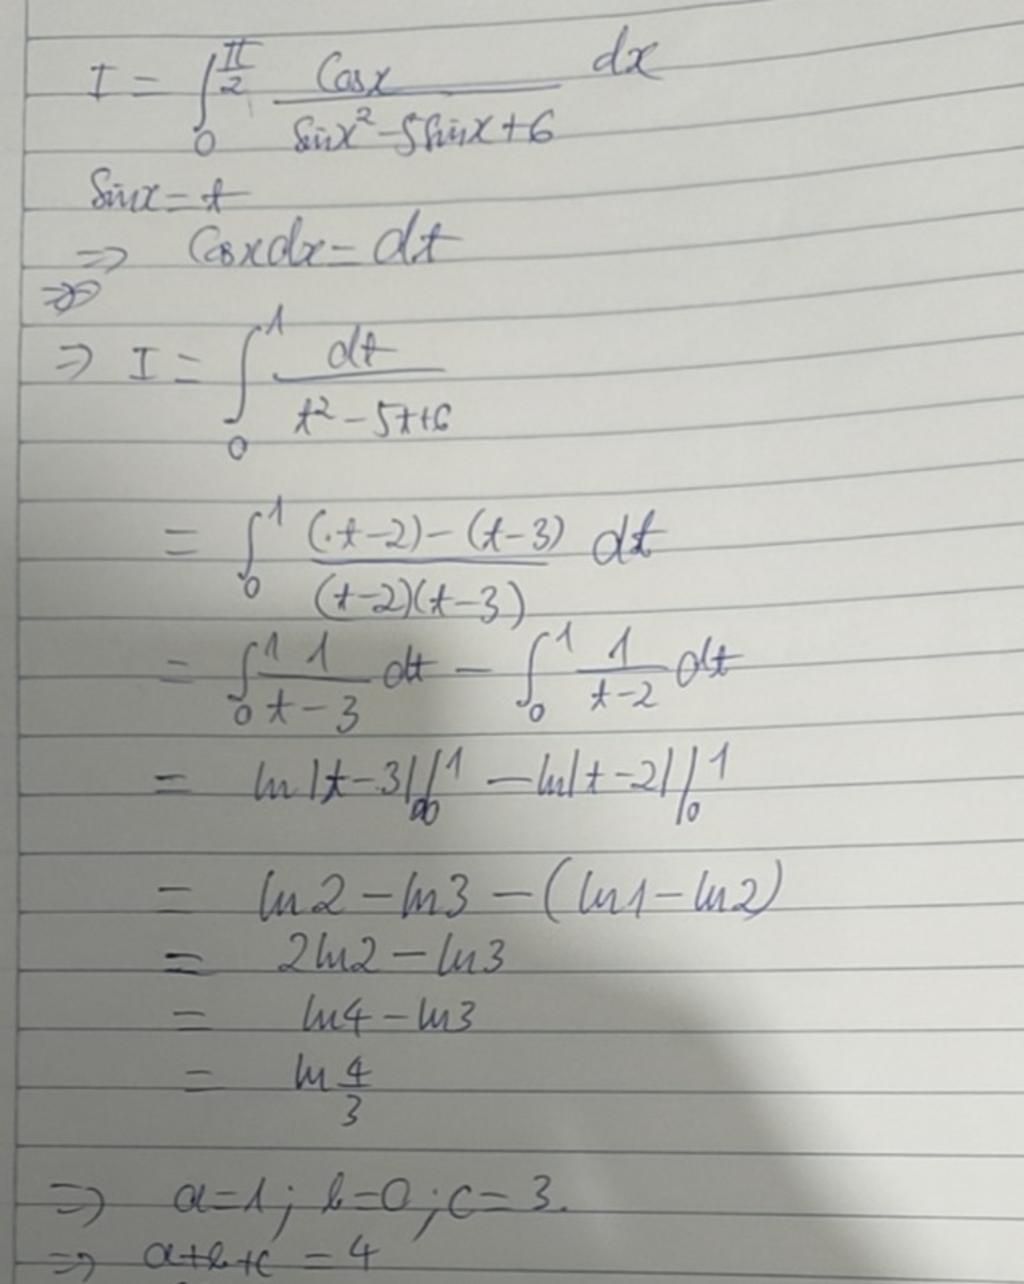 I = ∫₀^(π/2) Cosx / (Sinx² - 5Sinx + 6) dx
Sinx = t
⇒ Cosxdx = dt
⇒ I = ∫₀¹ dt / (t² - 5t + 6)
= ∫₀¹ ((t-2) - (t-3)) / ((t-2)(t-3)) dt
= ∫₀¹ 1/(t-3) dt - ∫₀¹ 1/(t-2) dt
= ln|t-3| |₀¹ - ln|t-2| |₀¹
= ln2 - ln3 - (ln1 - ln2)
= 2ln2 - ln3
= ln4 - ln3
= ln 4/3
⇒ a=1; b=0; c=3.
⇒ a+b+c = 4